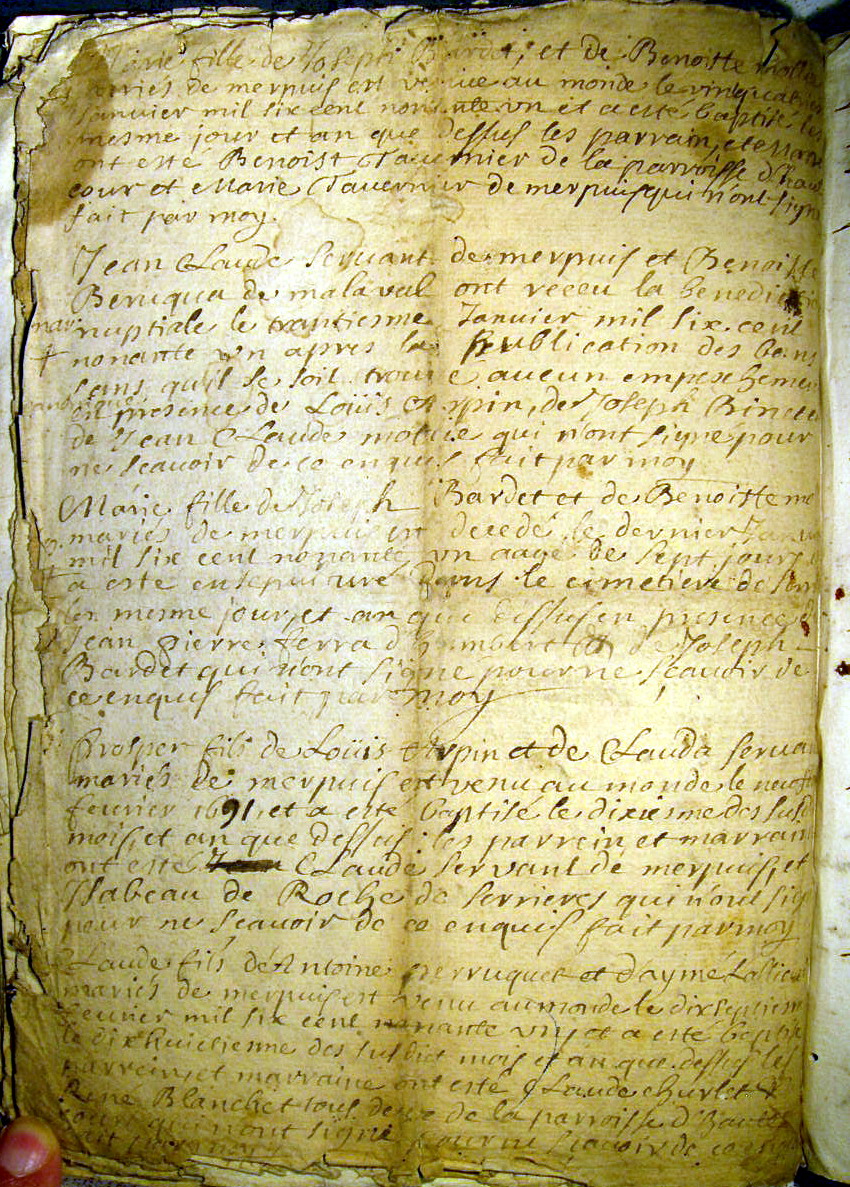 Marie fille de Joseph Bardet, et de Benoitte
mariés de merpuis est venue au monde le vingt
Janvier mil six cent nonante un et a esté baptisé le
mesme jour et an que dessus les parrain, et
ont esté Benoist Tavernier de la parroisse d'haut
cour et Marie Tavernier de merpuis qui n'ont signé
fait par moy.
Jean Claude Servant de merpuis et Benoiste
Beruqua de malaval ont receu la benedictio
mar nuptiale le trantiesme Janvier mil six cent
nonante un apres la publication des bans
sans qu'il se soit trouvé aucun empeschemen
en présence de Loüis Arpin, de Joseph Binet
de Jean Claude qui n'ont signé pour
ne scavoir de ce enquis fait par moy
Marie fille de Joseph Bardet et de Benoitte mo
mariés de merpuis est decedé le dernier Janv
mil six cent nonante un aagé de sept jours
a esté ensepulturé dans le cimetiere de
le mesme jour, et an que dessus en presence
Jean pierre ferra d'humbert de Joseph
Bardet qui n'ont signé pour ne scavoir de
ce enquis fait par moy
Prosper fils de Loüis Arpin et de Clauda Serva
mariés de merpuis est venu au monde le neuf
fevrier 1691, et a esté baptisé le dixiesme des susd
mois, et an que dessus les parrein, et marrain
ont esté Claude Servant de merpuis, et
Isabeau de Roche de Serrieres qui n'ont sig
pour ne scavoir de ce enquis fait par moy
Claude fils d'Antoine perruquet et d'aymé
mariés de merpuis est venu au monde le dixseptiem
fevrier mil six cent nonante un, et a esté baptisé
le dixhuictiesme des susdict mois et an que dessus les
parrein, et marraine ont esté Claude churlet &
Rene Blanchet tous deux de la parroisse d'haute
cour qui n'ont signé pour ne scavoir de ce enquis
fait par moy